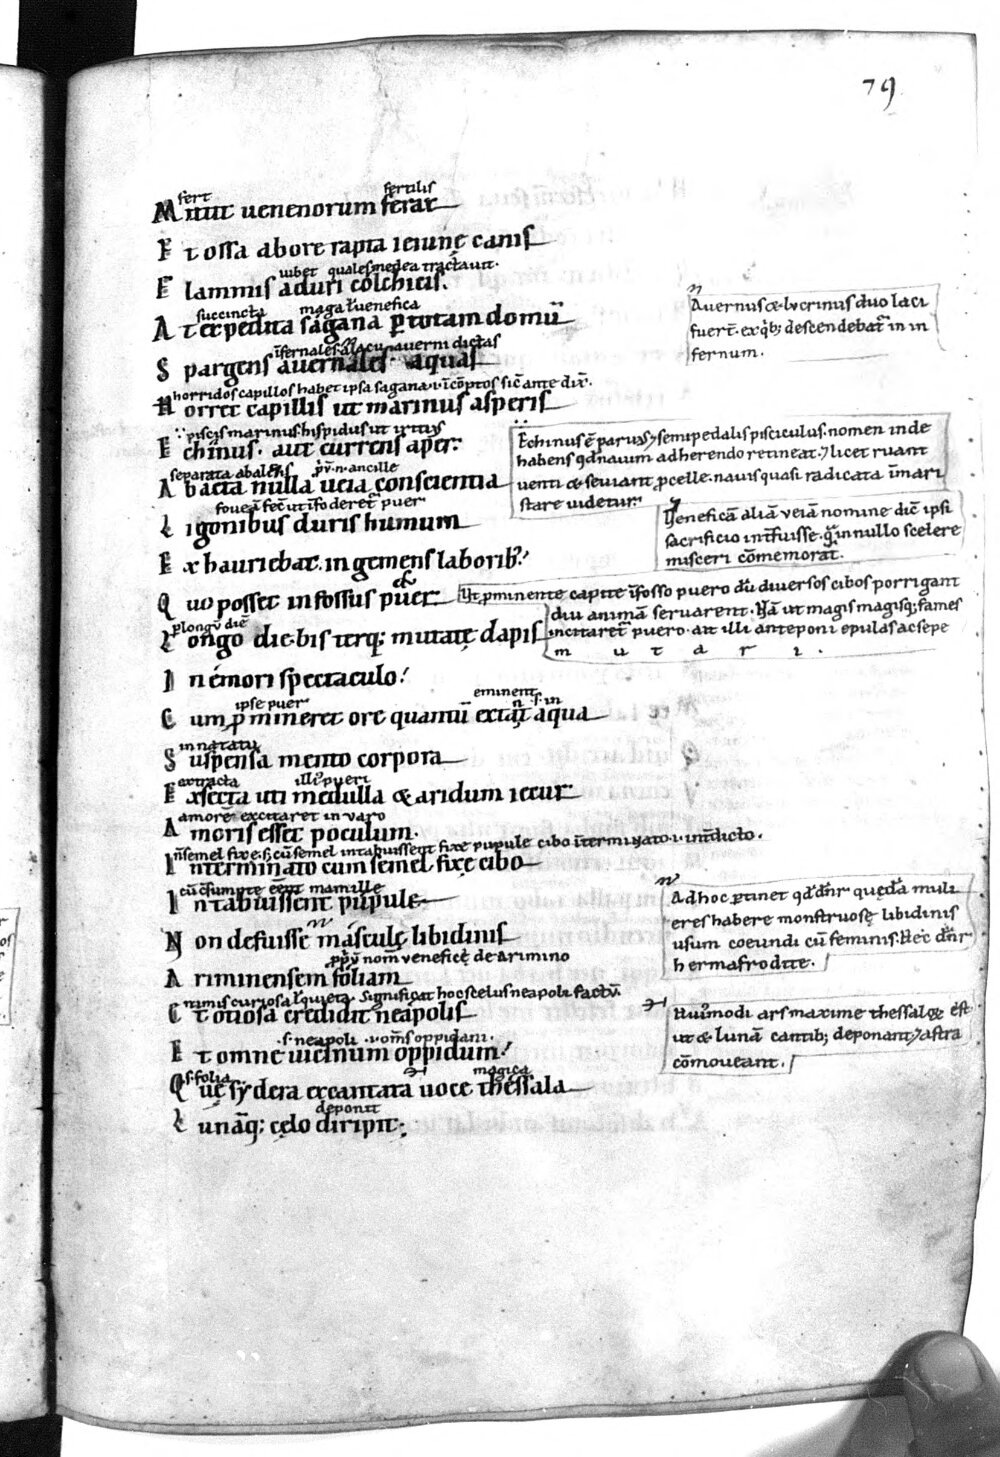 79
fert fertilis
Mittit uenenorum ferax
Et ossa abore rapta ieiunę canis
iubet quales medea tractauit.
Flammis aduri colchicis.
succincta maga ł uenefica
At expedita sagana ꝑ totam domū
īfernales a lacu auerni dictas
Spargens auernales aquas
horridos capillos habet ipsa sagana
Horret capillis ut marinus asperis
piscis marinus hispidus ut
Echinus. aut currens aper.
separata
Abacta nulla ueia conscientia
Ligonibus duris humum
Exhauriebat. ingemens laborib;
Quo posset infossus puer
ꝑ longū diē
Longo die. bis terq; mutatę dapis
Inemori spectaculo.
ipse puer eminent
Cum ꝓmineret ore quantū extāt aqua
in natatu
Suspensa mento corpora
extracta pueri
Exsecta uti medulla & aridum iecur
amorē excitaret in varo
Amoris esset poculum.
Interminato cum semel fixę cibo
mamille
Intabuissent pupulę
Non defuisse masculę libidinis
nom̄ veneficę de arimino
Ariminensem foliam
nimis curiosa significat hoc scelus neapoli factū
Et otiosa credidit neapolis
.s. neapoli
Et omne uicinum oppidum.
s. folia magica
Quę sydera excantata uoce thessala
deponit
Lunāq; cęlo diripit.
Auernus & lvcrinus duo laci
fuerτ. ex qb; descendebat in in
fernum.
Echinus ē paruus 7 semipedalis pisciculus. nomen inde
habens qd nauium adherendo retineat. 7 licet ruant
uenti & seuiant ꝓcelle. nauis quasi radicata ī mari
stare uidetur.
Veneficā aliā veiā nomine dic̄ ipsi
sacrificio int̄fuisse. in nullo scelere
misceri cōmemorat.
Vt ꝓminente capite īfosso puero dū diuersos cibos porrigant
diu animā seruarent. ut magis magisq; fames
incitaret puero. illi anteponi epulas ac sepe
mutari.
Ad hoc ꝑtinet qd quędā muli
eres habere monstruosę libidinis
usum coeundi cū feminis. Hęc
hermafrodite.
Huiusmodi ars maxime thessalos est
ut & lunā cantib; deponant 7 astra
cōmoueant.